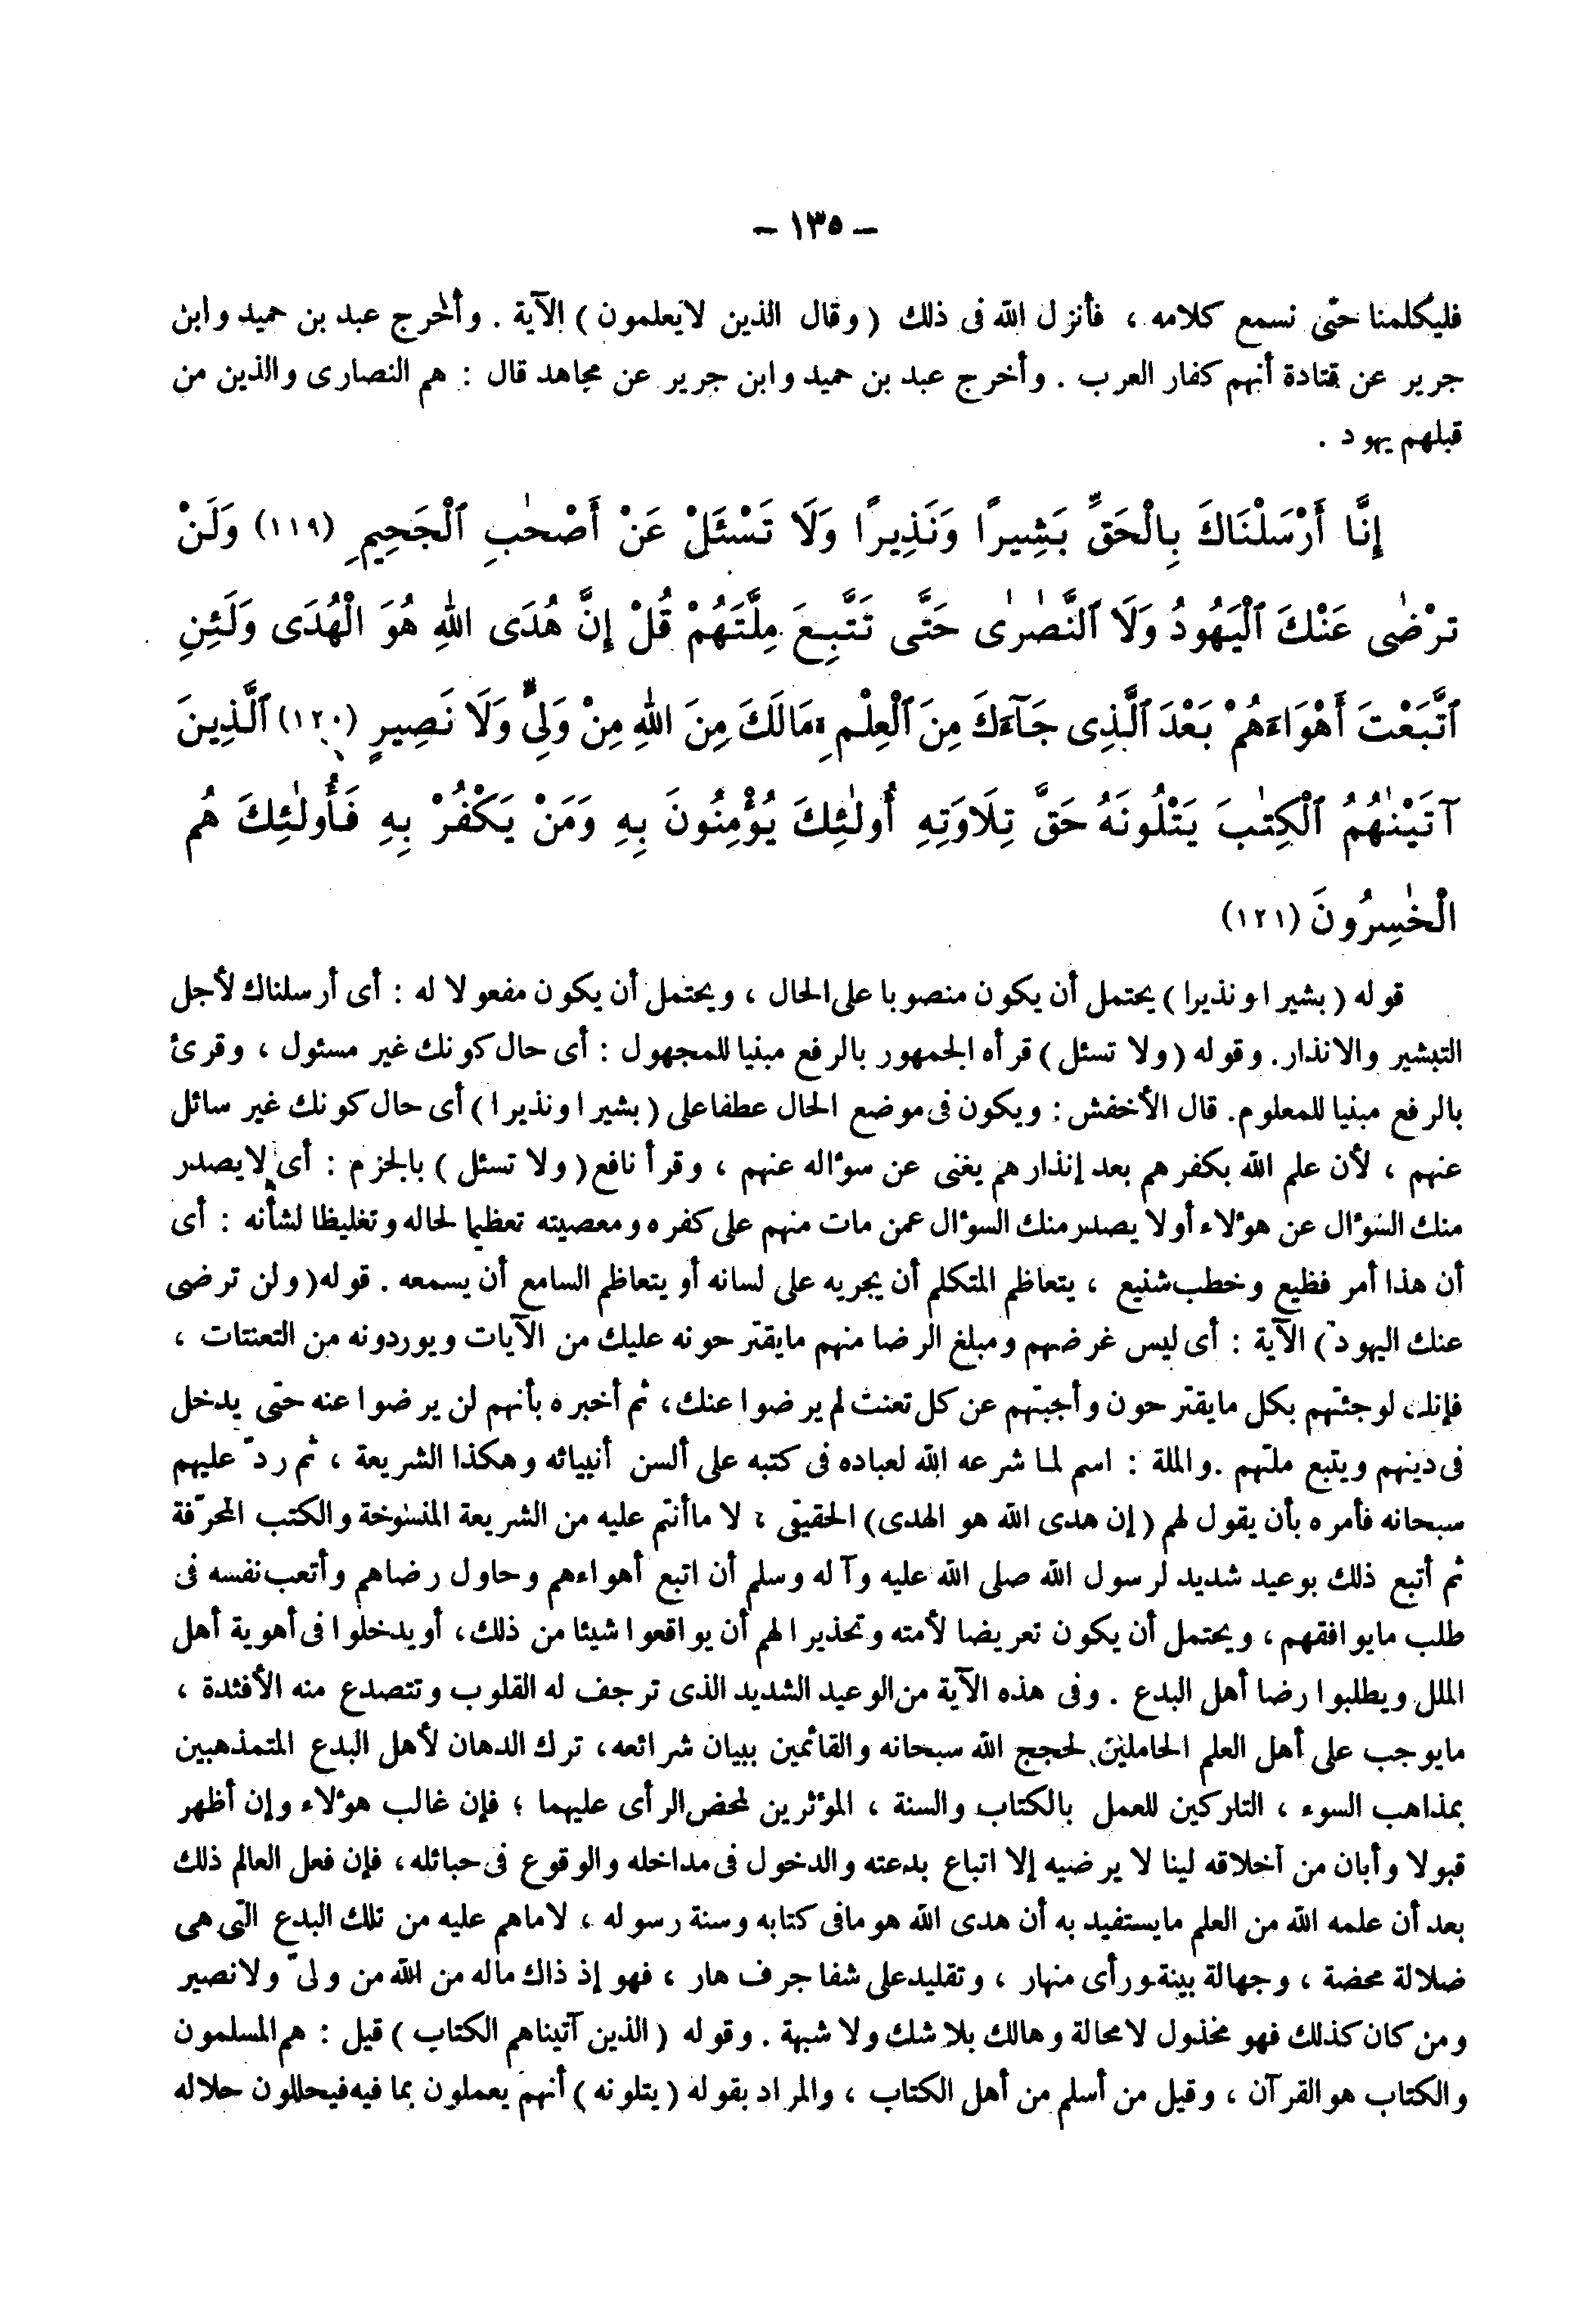 — ١٣٥ —
فليكلمنا حتى نسمع كلامه ، فأنزل الله فى ذلك ( وقال الذين لايعلمون ) الآية . وأخرج عبد بن حميد وابن
جرير عن قتادة أنهم كفار العرب . وأخرج عبد بن حميد وابن جرير عن مجاهد قال : هم النصارى والذين من
قبلهم يهود .
إِنَّا أَرْسَلْنَاكَ بِالْحَقِّ بَشِيرًا وَنَذِيرًا وَلَا تَسْئَلْ عَنْ أَصْحٰبِ ٱلْجَحِيمِ (١١٩) وَلَنْ
تَرْضٰى عَنْكَ ٱلْيَهُودُ وَلَا ٱلنَّصٰرٰى حَتَّى تَتَّبِعَ مِلَّتَهُمْ قُلْ إِنَّ هُدَى اللهِ هُوَ الْهُدَى وَلَئِنِ
ٱتَّبَعْتَ أَهْوَاءَهُمْ بَعْدَ ٱلَّذِى جَآءَكَ مِنَ ٱلْعِلْمِ مَالَكَ مِنَ اللهِ مِنْ وَلِىٍّ وَلَا نَصِيرٍ (١٢٠) ٱلَّذِينَ
آتَيْنٰهُمُ ٱلْكِتٰبَ يَتْلُونَهُ حَقَّ تِلَاوَتِهِ أُولٰئِكَ يُؤْمِنُونَ بِهِ وَمَنْ يَكْفُرْ بِهِ فَأُولٰئِكَ هُم
الْخٰسِرُونَ (١٢١)
قوله ( بشيرا ونذيرا ) يحتمل أن يكون منصوبا على الحال ، ويحتمل أن يكون مفعولا له : أى أرسلناك لأجل
التبشير والانذار. وقوله ( ولا تسئل ) قرأه الجمهور بالرفع مبنيا للمجهول : أى حال كونك غير مسئول ، وقرئ
بالرفع مبنيا للمعلوم. قال الأخفش : ويكون فى موضع الحال عطفا على ( بشيرا ونذيرا ) أى حال كونك غير سائل
عنهم ، لأن علم الله بكفرهم بعد إنذارهم يغنى عن سؤاله عنهم ، وقرأ نافع ( ولا تسئل ) بالجزم : أى لا يصدر
منك السؤال عن هؤلاء أو لا يصدر منك السؤال عمن مات منهم على كفره ومعصيته تعظيما لحاله وتغليظا لشأنه : أى
أن هذا أمر فظيع وخطب شنيع ، يتعاظم المتكلم أن يجريه على لسانه أو يتعاظم السامع أن يسمعه . قوله ( ولن ترضى
عنك اليهود ) الآية : أى ليس غرضهم ومبلغ الرضا منهم مايقترحونه عليك من الآيات ويوردونه من التعنتات ،
فإنك لو جئتهم بكل مايقترحون وأجبتهم عن كل تعنت لم يرضوا عنك، ثم أخبره بأنهم لن يرضوا عنه حتى يدخل
فى دينهم ويتبع ملتهم .والملة : اسم لما شرعه الله لعباده فى كتبه على ألسن أنبيائه وهكذا الشريعة ، ثم ردّ عليهم
سبحانه فأمره بأن يقول لهم ( إن هدى الله هو الهدى) الحقيقى ، لا ماأنتم عليه من الشريعة المنسوخة والكتب المحرّفة
ثم أتبع ذلك بوعيد شديد لرسول الله صلى الله عليه وآله وسلم أن اتبع أهواءهم وحاول رضاهم وأتعب نفسه فى
طلب مايوافقهم ، ويحتمل أن يكون تعريضا لأمته وتحذيرا لهم أن يواقعوا شيئا من ذلك، أو يدخلوا فى أهوية أهل
الملل ويطلبوا رضا أهل البدع . وفى هذه الآية من الوعيد الشديد الذى ترجف له القلوب وتتصدع منه الأفئدة ،
مايوجب على أهل العلم الحاملين لحجج الله سبحانه والقائمين ببيان شرائعه، ترك الدهان لأهل البدع المتمذهبين
بمذاهب السوء ، التاركين للعمل بالكتاب والسنة ، المؤثرين لمحض الرأى عليهما ؛ فإن غالب هؤلاء وإن أظهر
قبولا وأبان من أخلاقه لينا لا يرضيه إلا اتباع بدعته والدخول فى مداخله والوقوع فى حبائله، فإن فعل العالم ذلك
بعد أن علمه الله من العلم مايستفيد به أن هدى الله هو مافى كتابه وسنة رسوله ، لاماهم عليه من تلك البدع التى هى
ضلالة محضة ، وجهالة بينة ورأى منهار ، وتقليد على شفا جرف هار ، فهو إذ ذاك ماله من الله من ولىّ ولا نصير
ومن كان كذلك فهو مخذول لامحالة وهالك بلا شك ولا شبهة . وقوله ( الذين آتيناهم الكتاب ) قيل : هم المسلمون
والكتاب هو القرآن ، وقيل من أسلم من أهل الكتاب ، والمراد بقوله ( يتلونه ) أنهم يعملون بما فيه فيحللون حلاله